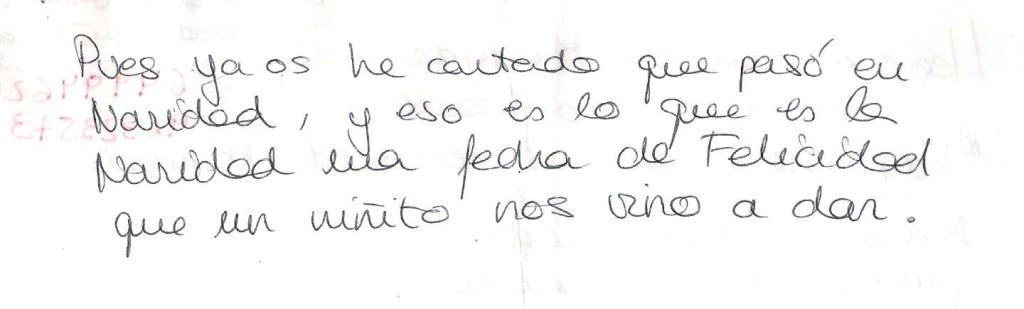 Pues ya os he contado que pasó en
Navidad, y eso es lo que es la
Navidad una fecha de Felicidad
que un niñito nos vino a dar.